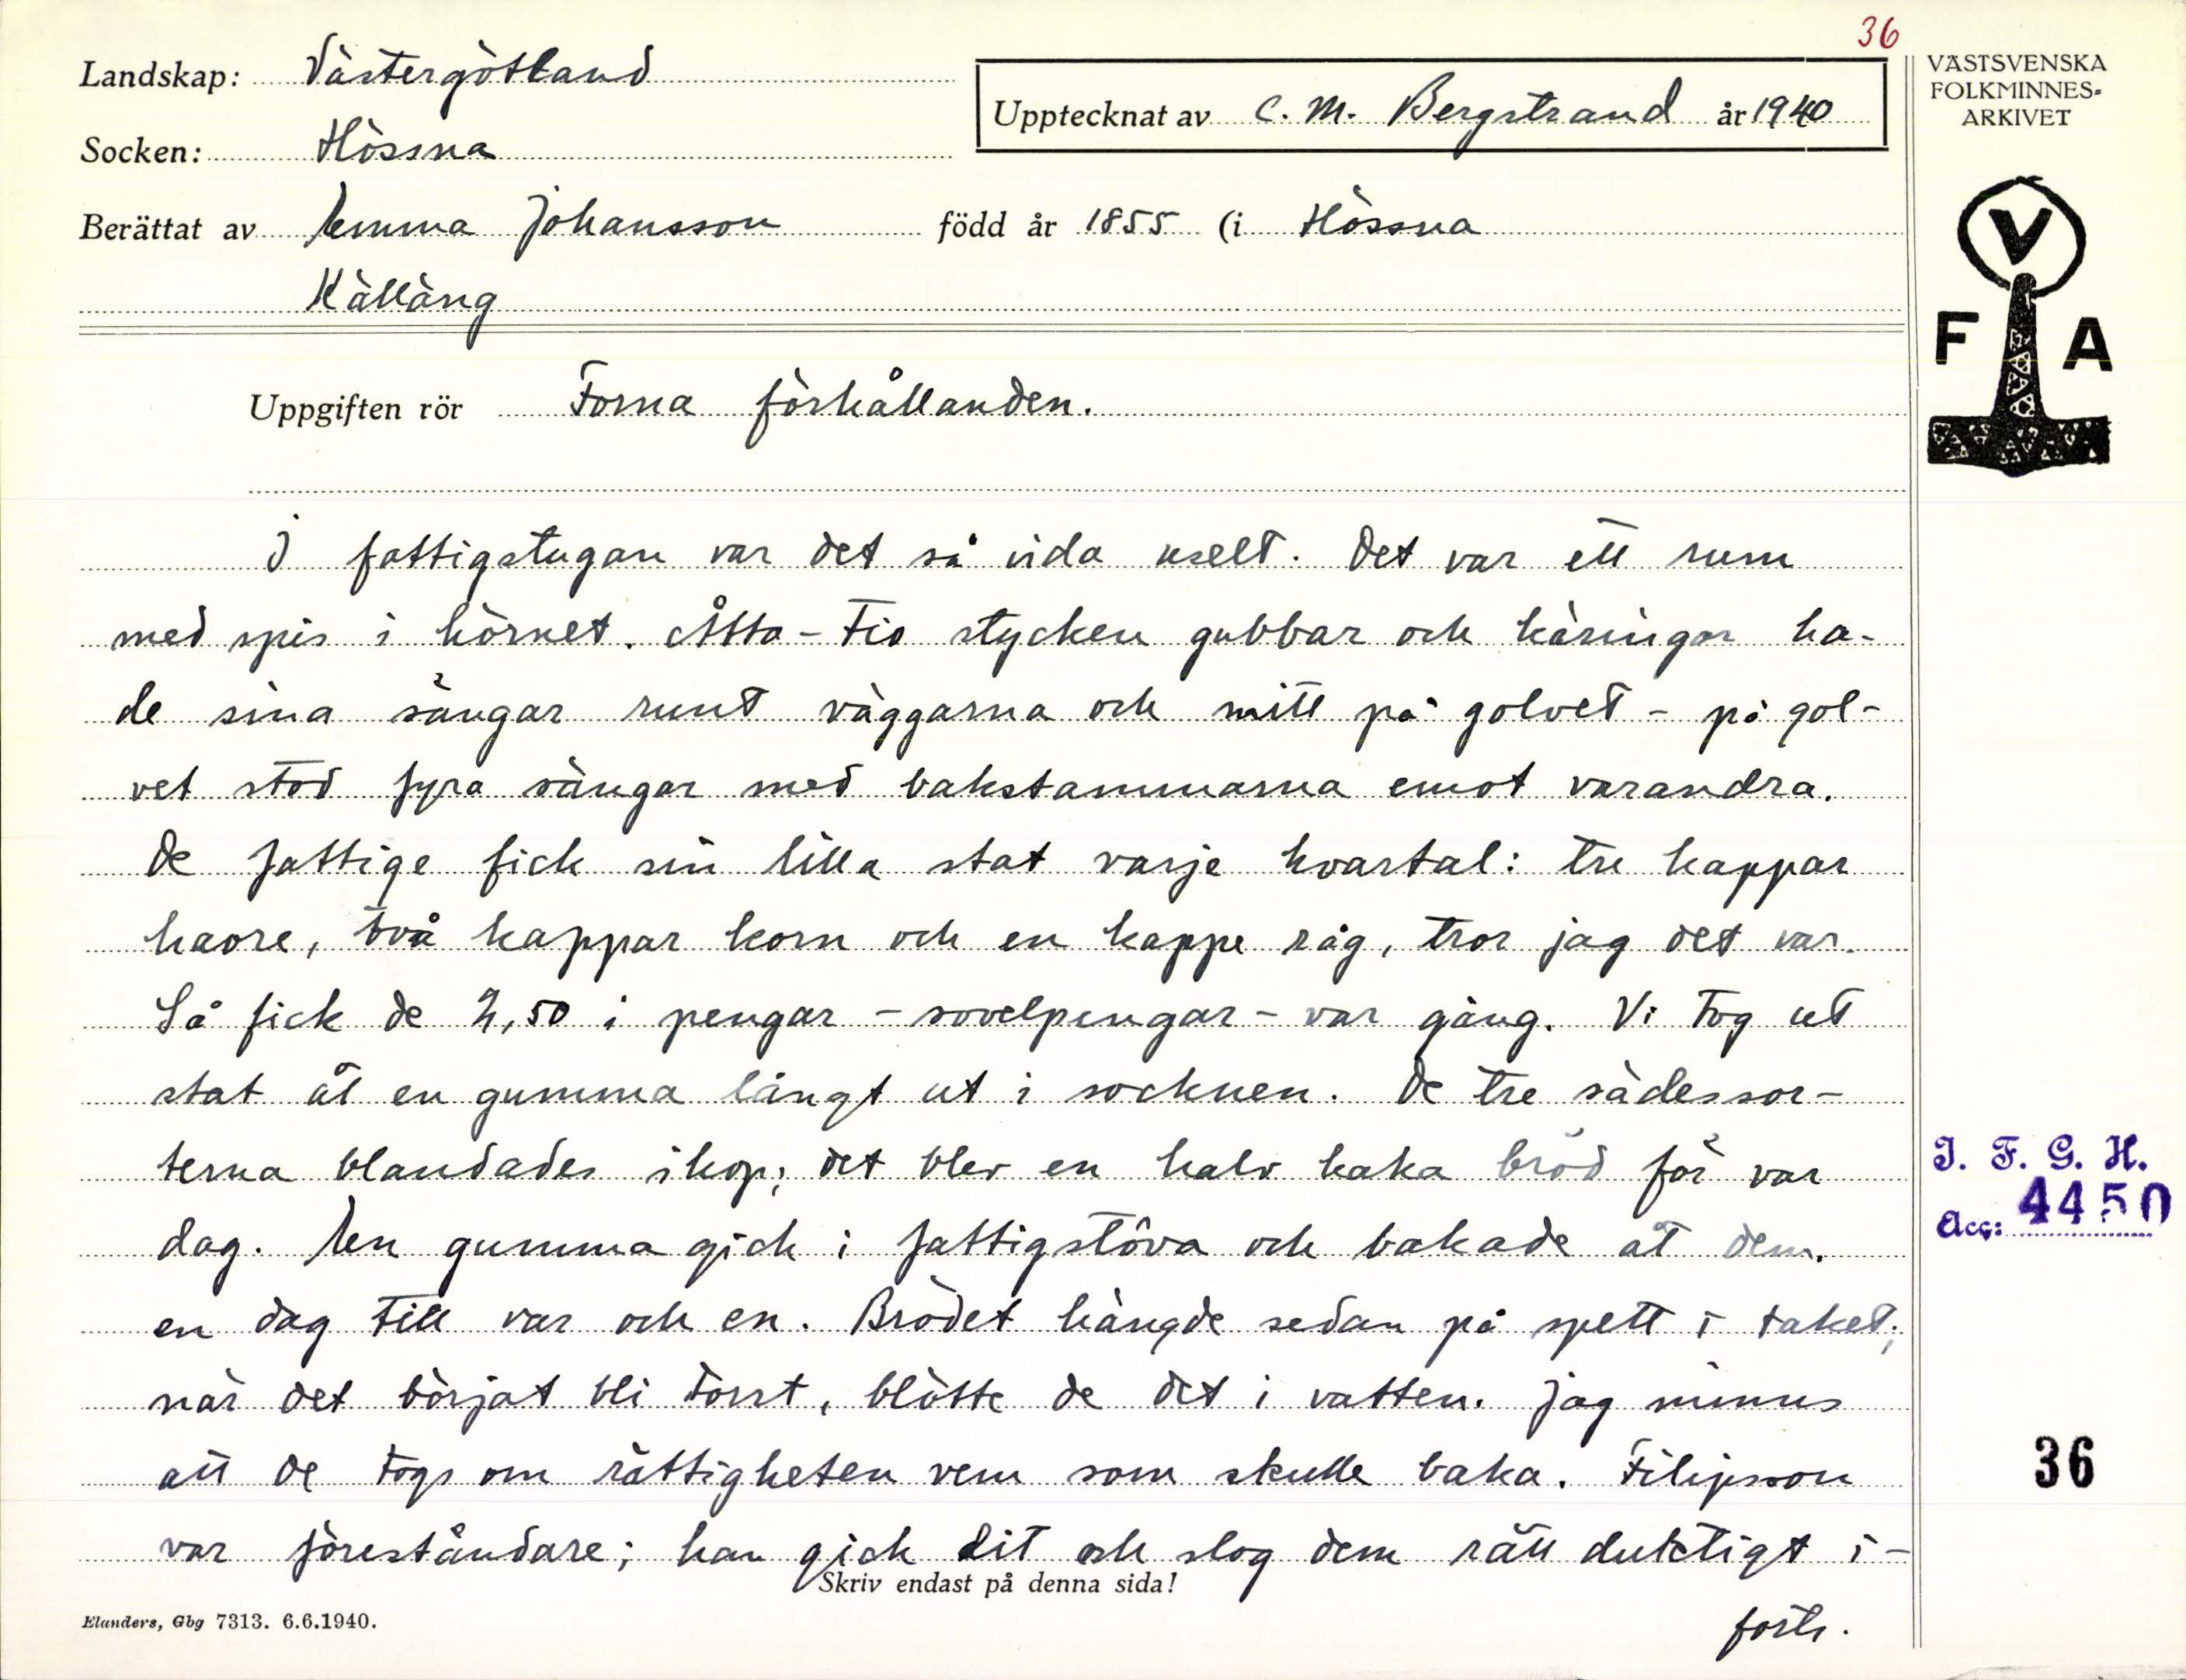 36
Landskap: Västergötland
Upptecknat av C. M. Bergstrand år 1940
Socken: Hössna
Berättat av Emma Johansson född år 1855 (i Hössna
Källäng
VÄSTSVENSKA
FOLKMINNES-
ARKIVET
V
F A
Uppgiften rör Forna förhållanden.
I fattigstugan var det så vida uselt. Det var ett rum
med spis i hörnet. Åtta-tio stycken gubbar och käringar ha-
de sina sängar runt väggarna och mitt på golvet - på gol-
vet stod fyra sängar med bakstammarna emot varandra.
De fattige fick sin lilla stat varje kvartal: tre kappar
havre, två kappar korn och en kappe råg, tror jag det var.
Så fick de 2,50 i pengar - sovelpengar - var gång. Vi tog ut
stat åt en gumma långt ut i socknen. De tre sädessor-
terna blandades ihop; det blev en halv kaka bröd för var
dag. En gumma gick i fattigstôva och bakade åt dem.
en dag till var och en. Brödet hängde sedan på spett i taket;
när det börjat bli torrt, blötte de det i vatten. Jag minns
att de togs om rättigheten vem som skulle baka. Filipsson
var föreståndare; han gick dit och slog dem rätt duktigt i-
Skriv endast på denna sida!
forts.
Elanders, Gbg 7313. 6.6.1940.
I. F. G. H.
Acc: 4450
36